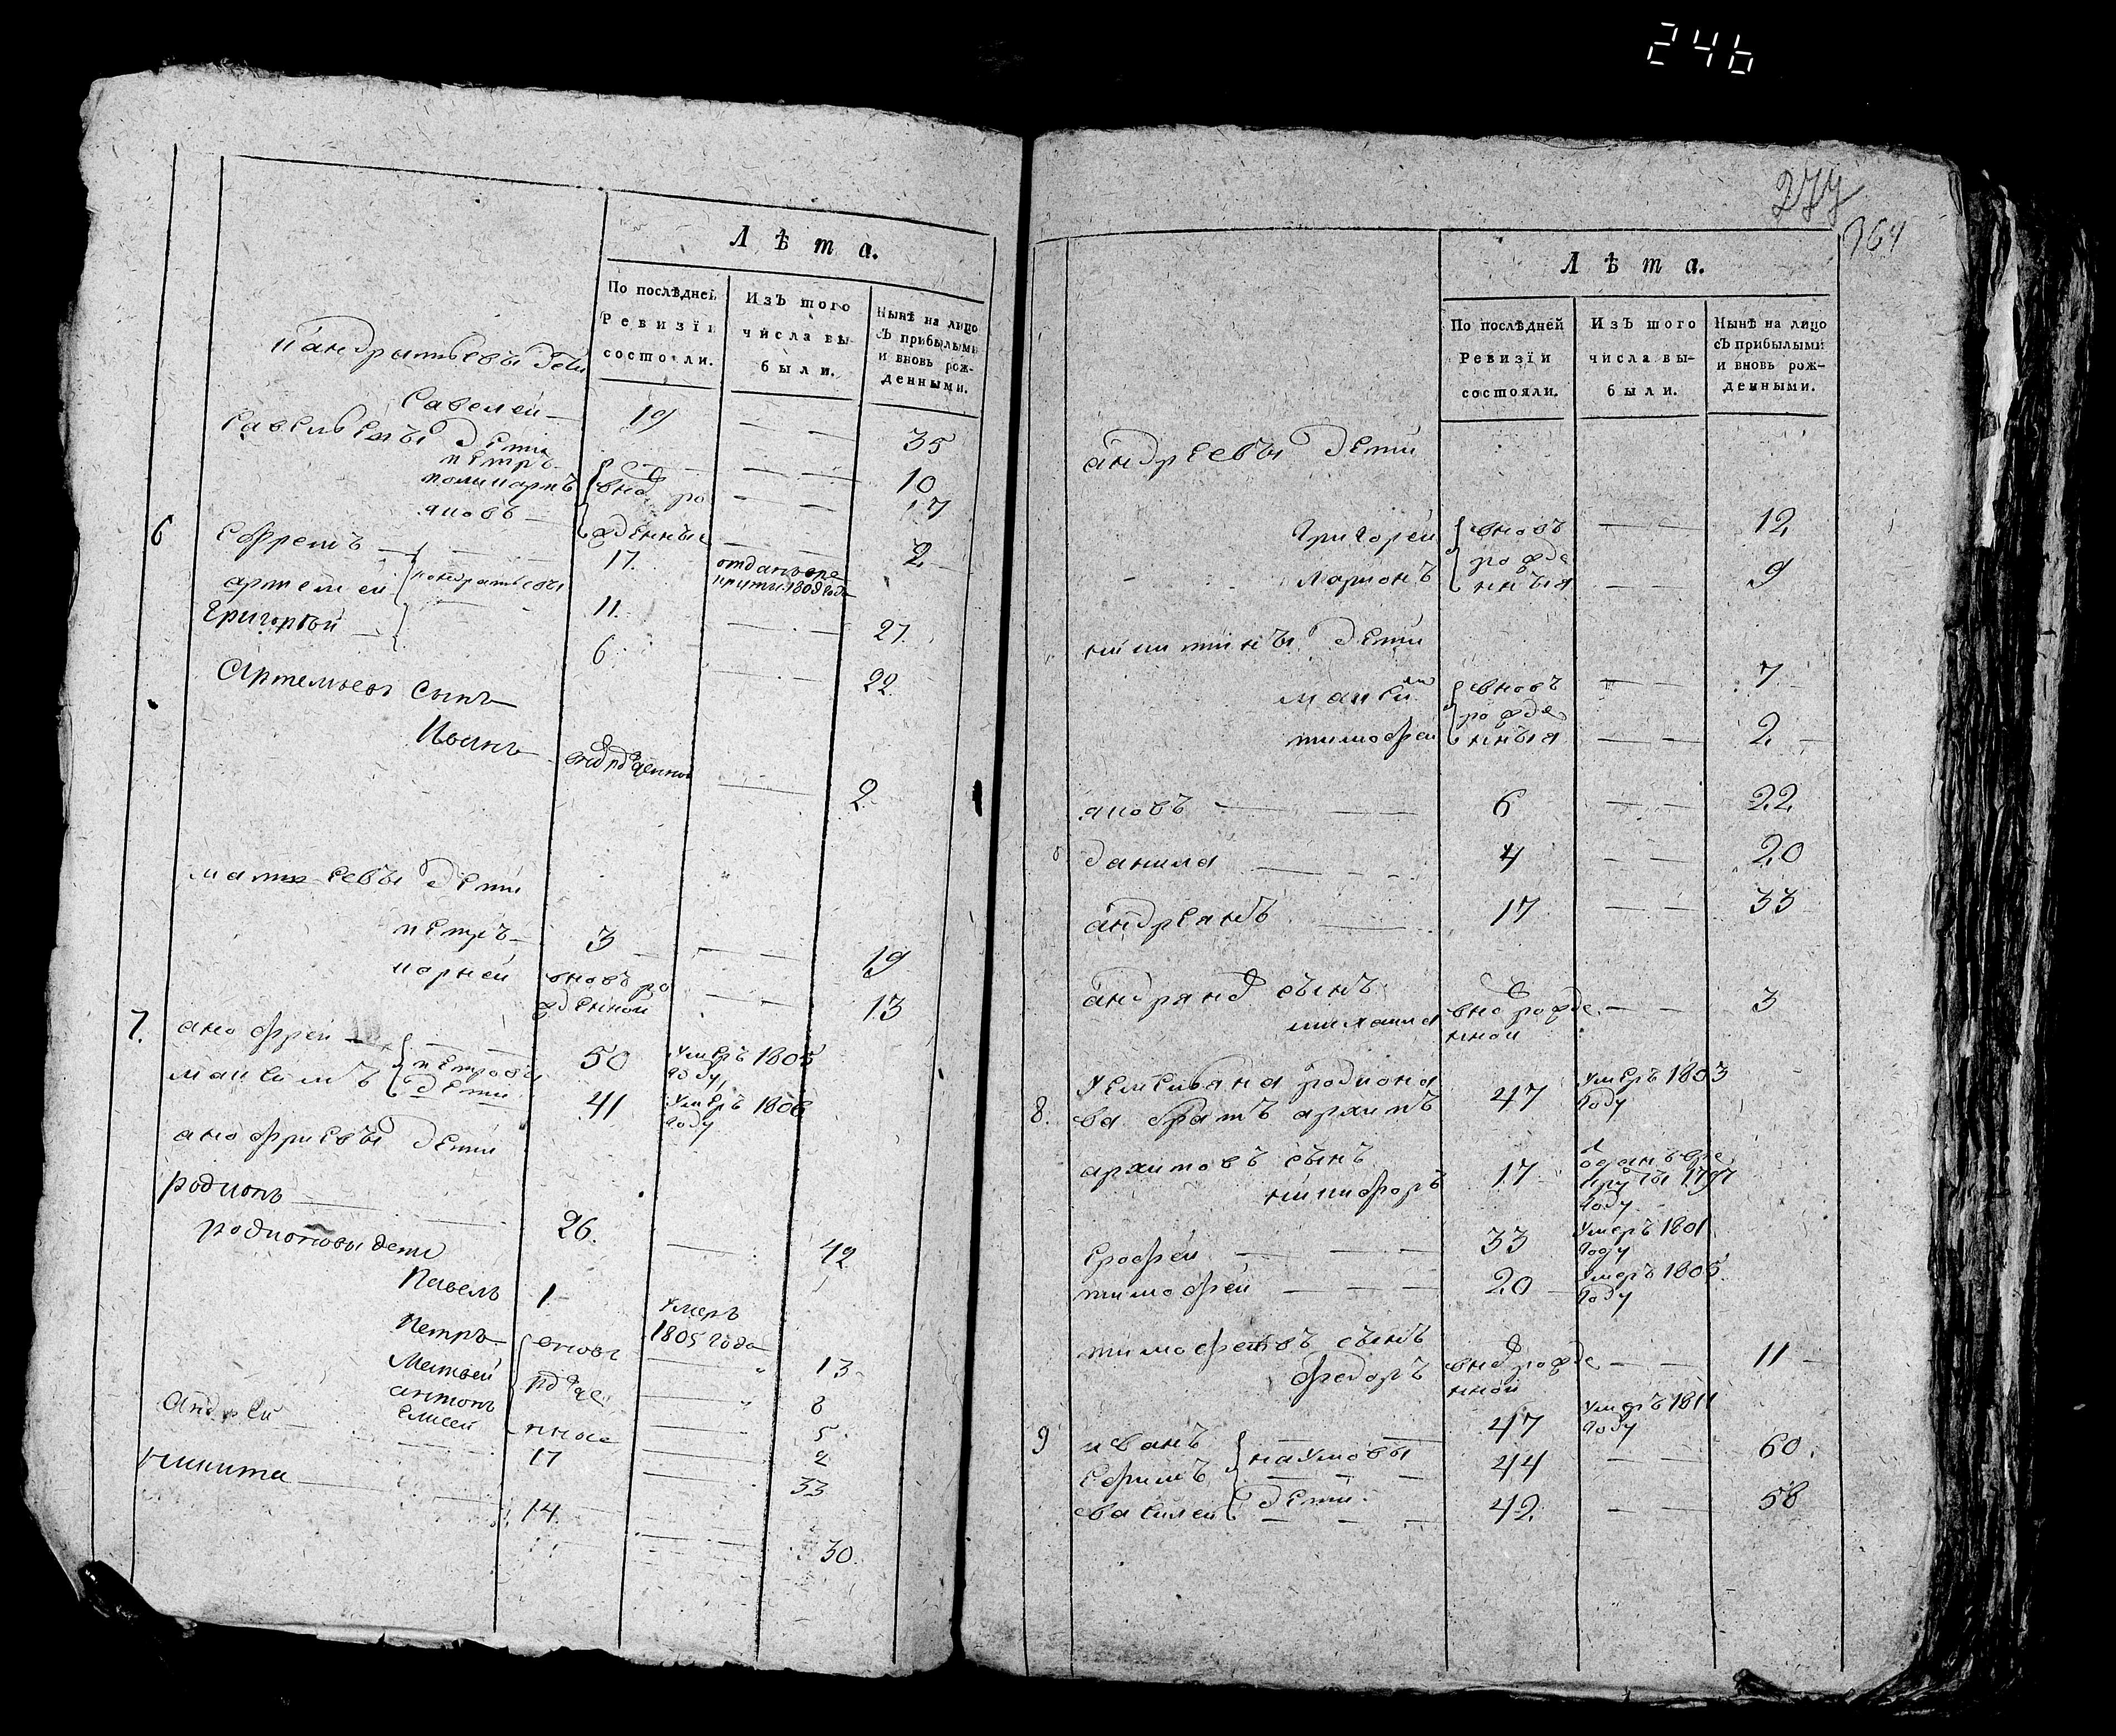 246
Лѣта.
По послѣдней Ревизїи состояли.
Изъ того числа выбыли.
Нынѣ на лицо съ прибылыми и вновь рожденными.
Пандратьевы дети
Савелей 19 — — 35
Савельевы дети
петръ — — 10
поликарпъ внов ро — — 17
яковъ жденныя — — 2
6 Ефремъ 17. отдан в рекруты 1808 года
артемей кондратьевы 11. — — 27.
Григорей 6 — — 22
Артемьевъ Сынъ
Иванъ вно рожденной — 2
матвеевы дети
петръ 3 — — 19
корней вновь рожденной — — 13
7. анофрей 50 умеръ 1805 году
максимъ петровы дети 41 умеръ 1806 году
анофриевы дети
родионъ 26. — 42
родионовы дети
Павелъ 1 умеръ 1805 года
Петръ вновь — 13
Матвей рожде — 8
антонъ — 5
Елисей нные — 2
Андрей 17 — 33
никита 14 — 30
277
264
Лѣта.
По послѣдней Ревизїи состояли.
Изъ того числа выбыли.
Нынѣ на лицо съ прибылыми и вновь рожденными.
андреевы дети
Григорей вновь — — 12
ларионъ рожденныя — — 9
никитины дети
максим вновь — — 7
тимофеи рожденныя — — 2
яковъ — — 6 — — 22
данила — — 4 — — 20
андреянъ — 17 — — 33
андряно сынъ
михаила вно рожденной — — 3
8. Уемельяна родионова братъ архипъ 47 умеръ 1803 году
архиповъ сынъ
никифоръ 17 отданъ в рекруты 1797 году
Ерофеи — — 33 умеръ 1801 году
тимофеи — — 20 умеръ 1805 году
тимофеевъ сынъ
федоръ вно рожденной — — 11
9 иванъ 47 умеръ 1811 году
Ефимъ наумовы 44 — — 60
василеи дети 42 — — 58